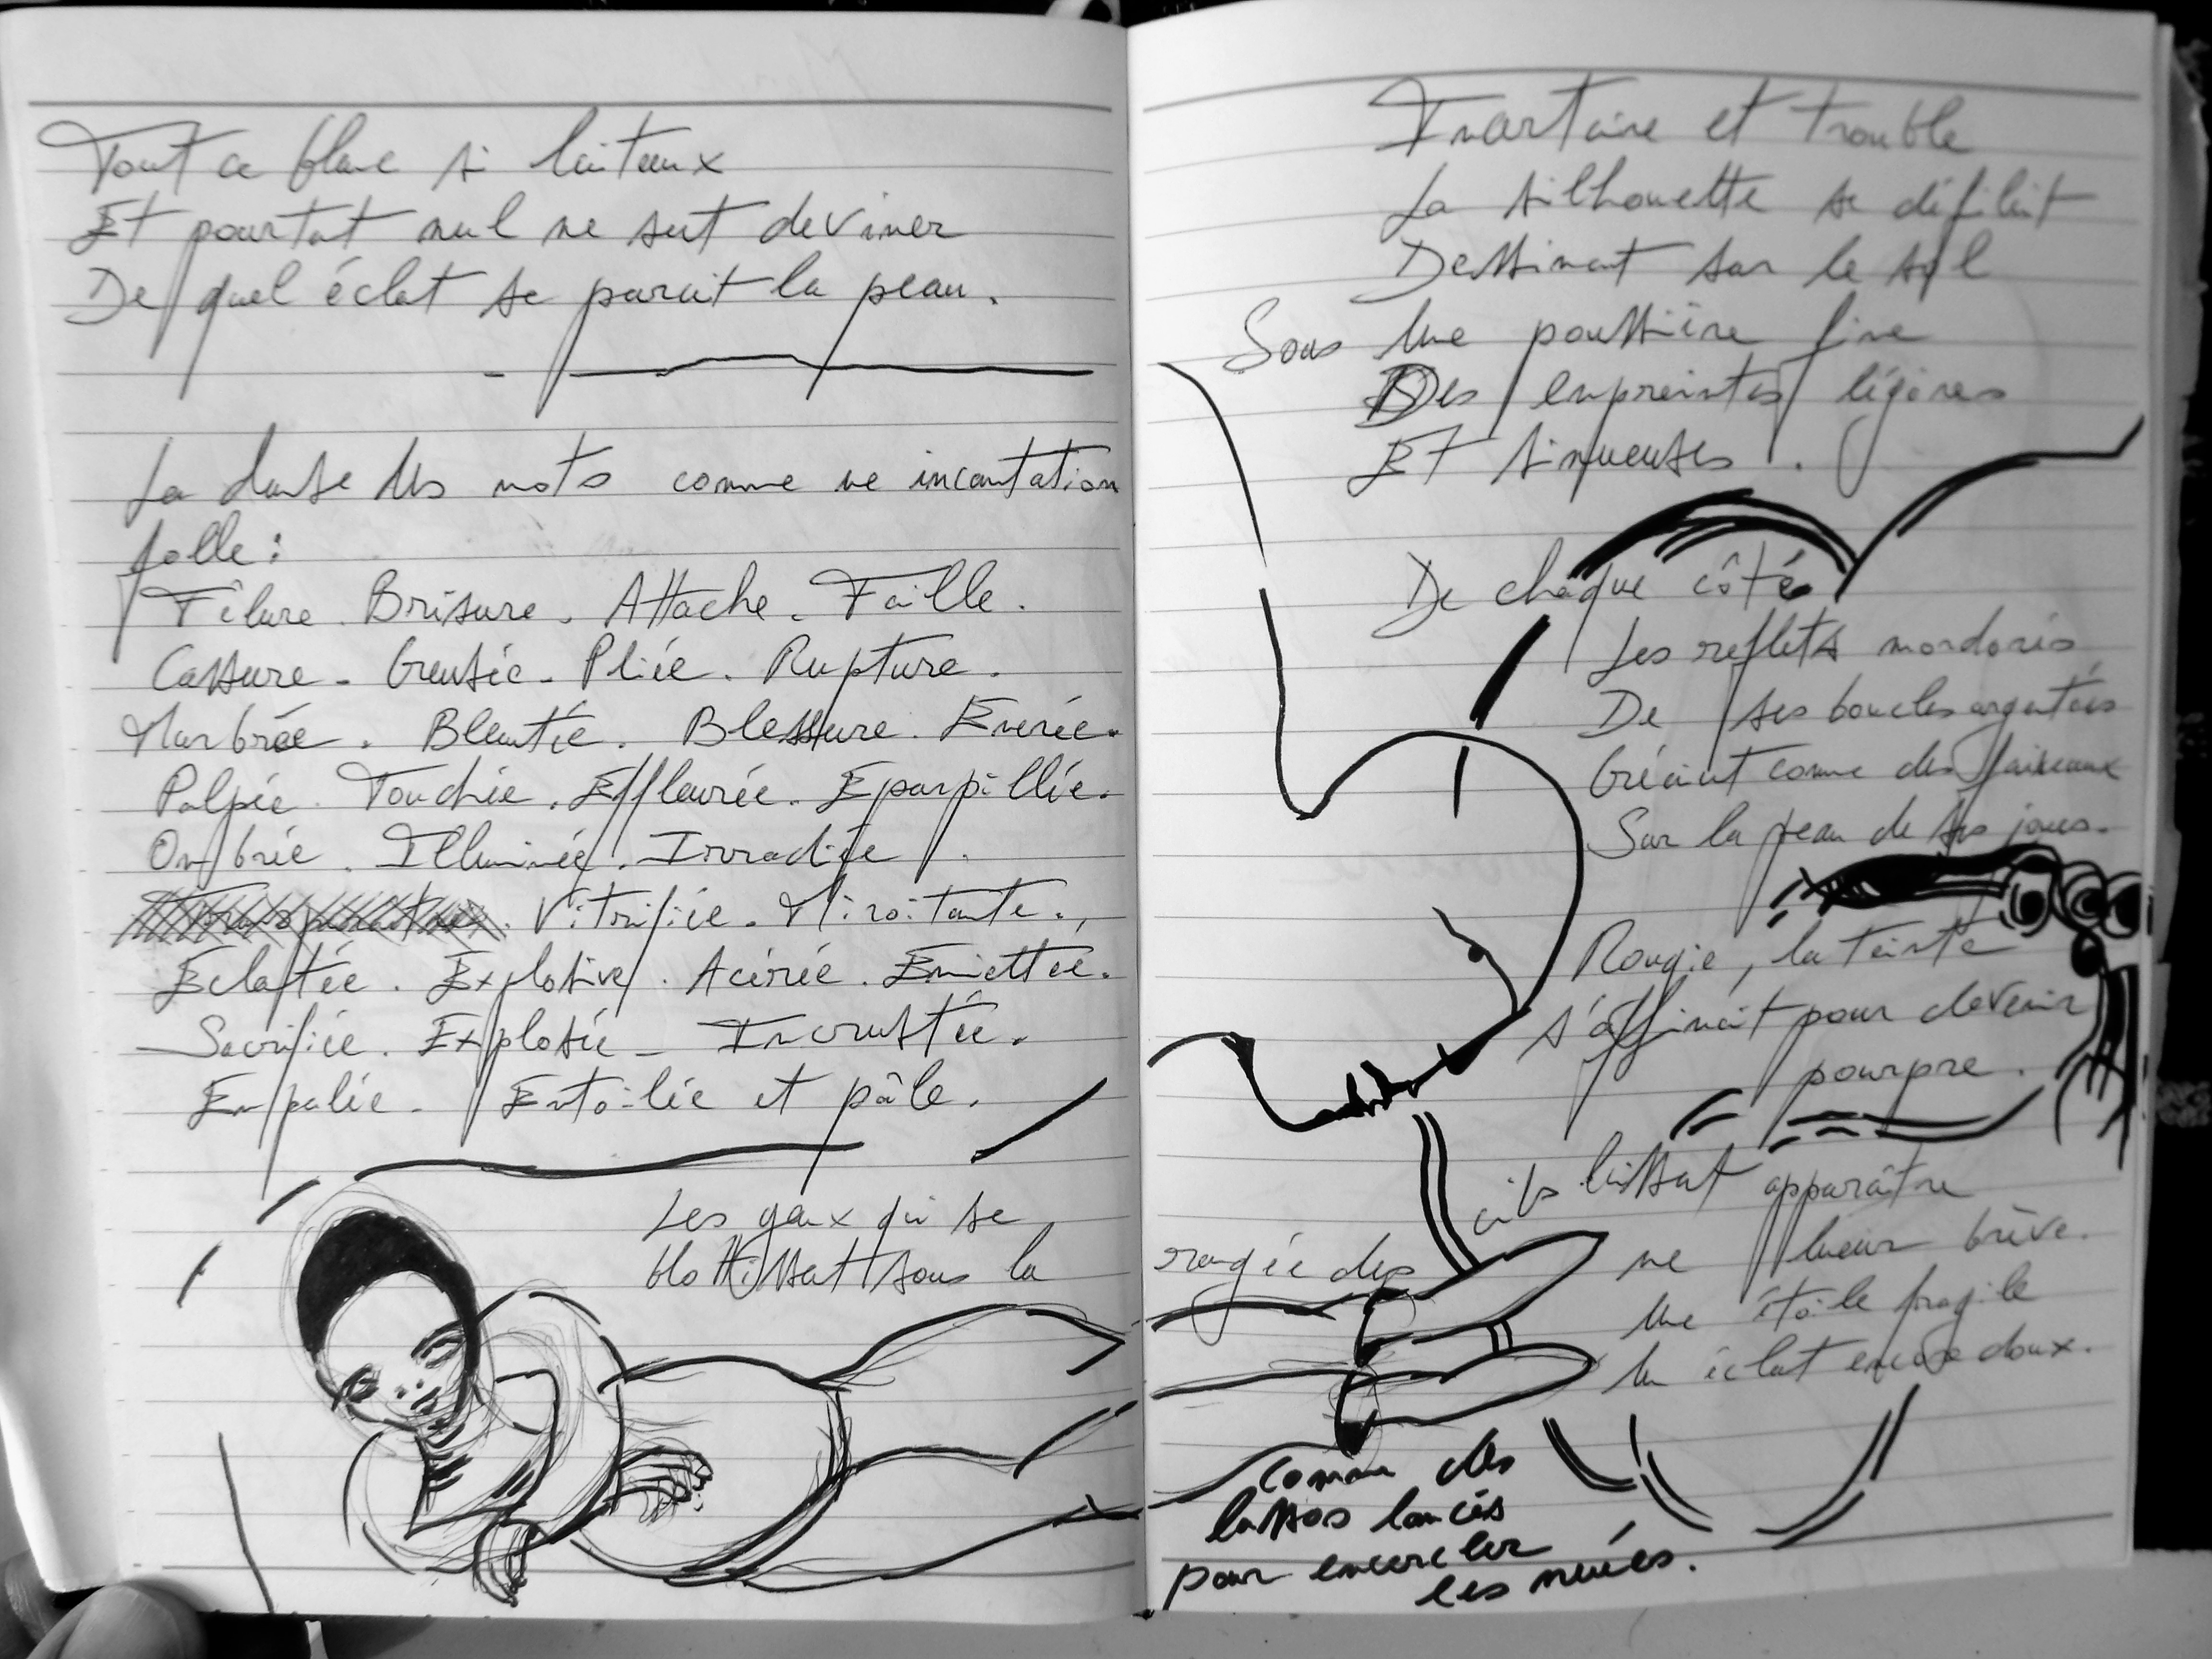 Tout ce blanc si laiteux
Et pourtant nul ne sut deviner
De quel éclat se parait la peau.
La danse des mots comme une incantation
folle :
Fêlure. Brisure. Attache. Faille.
Cassure - Creusée - Pliée. Rupture.
Marbrée. Bleutée. Blessure. Enerée.
Palpée. Touchée. Effleurée. Eparpillée.
Ombrée. Illuminée. Irradiée.
Vitrifiée. Miroitante.
Eclatée. Explosive. Acérée. Emiettée.
Sacrifiée. Explosée - Incrustée.
Empalée. Entoilée et pâle.
Les yeux qui se
blottissent sous la
et trouble
La silhouette se défilait
Dessinant sur le sol
Sous une poussière fine
Des empreintes légères
Et sinueuses.
De chaque côté
Les reflets mordorés
De ses boucles argentées
Créaient comme des faisceaux
Sur la peau de ses joues.
Rougie, la teinte
s'affinait pour devenir
pourpre.
rangée des cils laissant apparaître
une lueur brève.
Une étoile fragile
Un éclat encore doux.
Comme des
lassos lancés
pour encercler
les nuées.